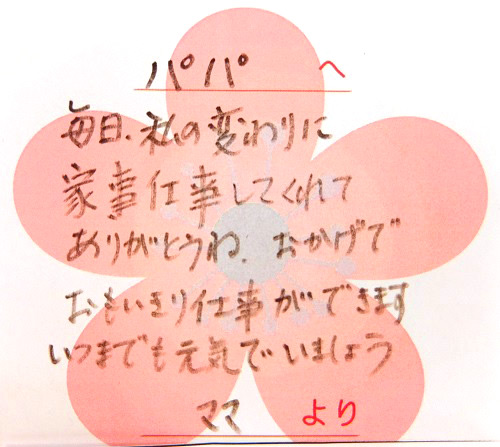 パパ へ
毎日、私の変わりに
家事仕事してくれて
ありがとうね、おかげで
おもいきり仕事ができます
いつまでも元気でいましょう
ママ より